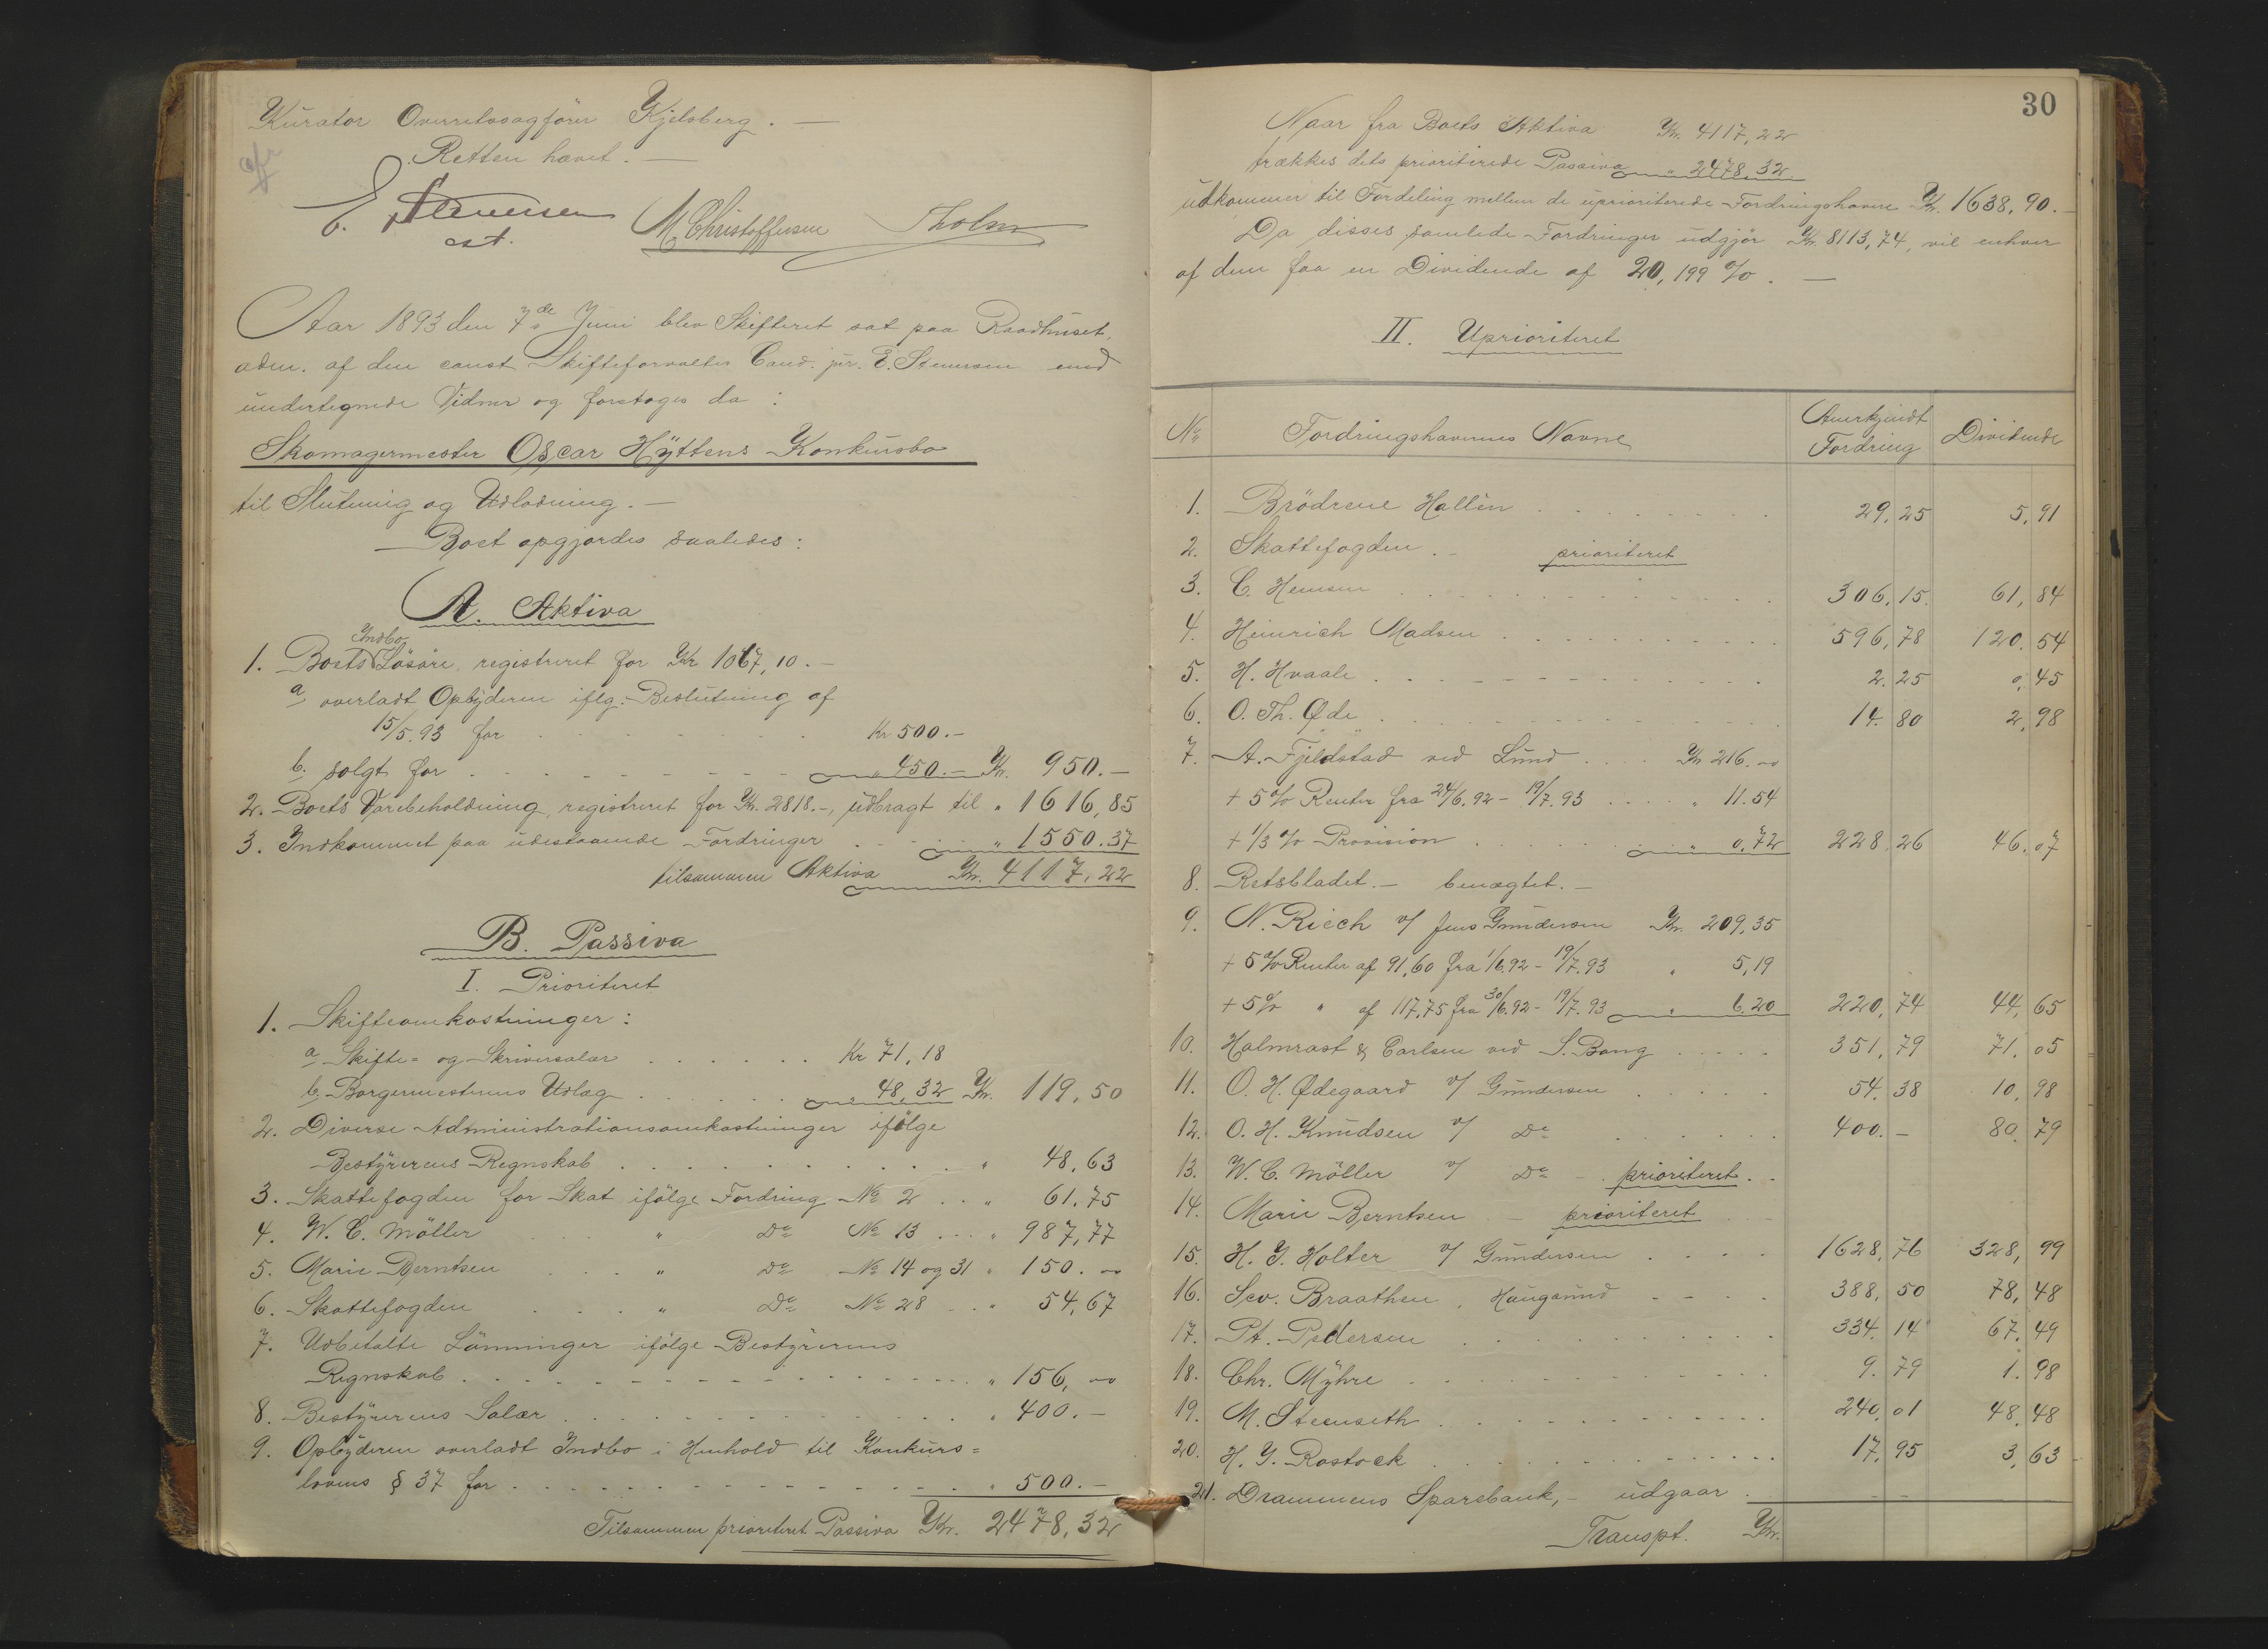 Kurator Overretssagfører Kjelsberg. —
Retten hævet. —
cfr
E. Stenersen
cst.
M. Christoffersen
Tholsen
Aar 1893 den 7de Juni blev Skifteret sat paa Raadhuset,
adm. af den const Skifteforvalter Cand. jur. E. Stenersen med
undertegnede Vidner og foretoges da :
Skomagermester Oscar Hyttens Konkursbo
til Slutning og Udlodning. —
Boet opgjordes saaledes :
A. Aktiva
Indbo
1. Boets Løsøre, registreret for Kr 1067,10. —
a overladt Opbyderen iflg. Beslutning af
15/5.93 for . . . . . . Kr 500.—
b. solgt for . . . . . . . „ 450.— Kr. 950.—
2. Boets Varebeholdning, registreret for Kr. 2818.—, udbragt til „ 1616,85
3. Indkommet paa udestaaende Fordringer . . . „ 1550.37
tilsammen Aktiva Kr. 4117,22
B. Passiva
I. Prioriteret
1. Skifteomkostninger :
a Skifte= og Skriversalær . . . . . . Kr 71,18
b. Borgermesterens Udlæg . . . . . . „ 48,32 Kr. 119,50
2. Diverse Administrationsomkostninger ifølge
Bestyrerens Regnskab . . . . . . . . „ 48,63
3. Skattefogden for Skat ifølge Fordring No 2 . . „ 61.75
4. W. C. Møller . . . „ Do No 13 . . . „ 987,77
5. Marie Berntsen . . . „ Do No 14 og 31 „ 150. 00
6. Skattefogden . . . „ Do No 28 . . . „ 54,67
7. Udbetalte Lønninger ifølge Bestyrerens
Regnskab . . . . . . . . . . „ 156, 00
8. Bestyrerens Salær . . . . . . . . „ 400.—
9. Opbyderen overladt Indbo i Henhold til Konkurs=
lovens § 37 for . . . . . . . . . „ 500.—
Tilsammen prioriteret Passiva Kr. 2478,32
30
Naar fra Boets Aktiva Kr. 4117,22
trækkes dets prioriterede Passiva „ 2478,32
udkommer til Fordeling mellem de uprioriterede Fordringshavere Kr. 1638,90.—
Da disses samlede Fordringer udgjør Kr. 8113,74, vil enhver
af dem faa en Dividende af 20,199 %. —
II. Uprioriteret
No Fordringshavernes Navne Anerkjendt Fordring Dividende
1. Brødrene Hallén . . . . . . . 29,25 5,91
2. Skattefogden . – prioriteret
3. C. Hemsen . . . . . . . 306,15. 61,84
4. Heinrich Madsen . . . . . . . 596,78 120.54
5. H. Hvaale . . . . . . . 2.25 0,45
6. O. Th. Øde . . . . . . . 14.80 2,98
7. A. Fjeldstad ved Lund . . . . Kr 216.00
+ 5 % Renter fra 24/6.92 – 19/7.93 . . . . „ 11.54
+ 1/3 % Provision . . . . . . „ 0.72 228.26 46.07
8. Retsbladet. — benægtet. —
9. N. Riech v/ Jens Gundersen Kr. 209,35
+ 5 % Renter af 91,60 fra 1/6.92 – 19/7.93 „ 5,19
+ 5 % „ af 117,75 fra 30/6.92 – 19/7.93 „ 6.20 220,74 44,65
10. Halmrast & Carlsen ved S. Bang . . . . . 351,79 71,05
11. O. H. Ødegaard v/ Gundersen . . . . . 54.38 10,98
12. O. H. Knudsen v/ Do . . . . . . 400.— 80.79
13. W. C. Møller v/ Do – . prioriteret . .
14. Marie Berntsen – prioriteret
15. H. J. Holter v/ Gundersen . . . . 1628,76 328,99
16. Sev. Braathen, Haugsund . . . . 388,50 78,48
17. Pt. Pedersen . . . . . . . 334.14 67.49
18. Chr. Myhre . . . . . . . 9.79 1.98
19. M. Steenseth . . . . . . . 240,01 48,48
20. H. J. Rostock . . . . . . . 17,95 3,63
21. Drammens Sparebank, – udgaar . – –
Transpt. Kr.